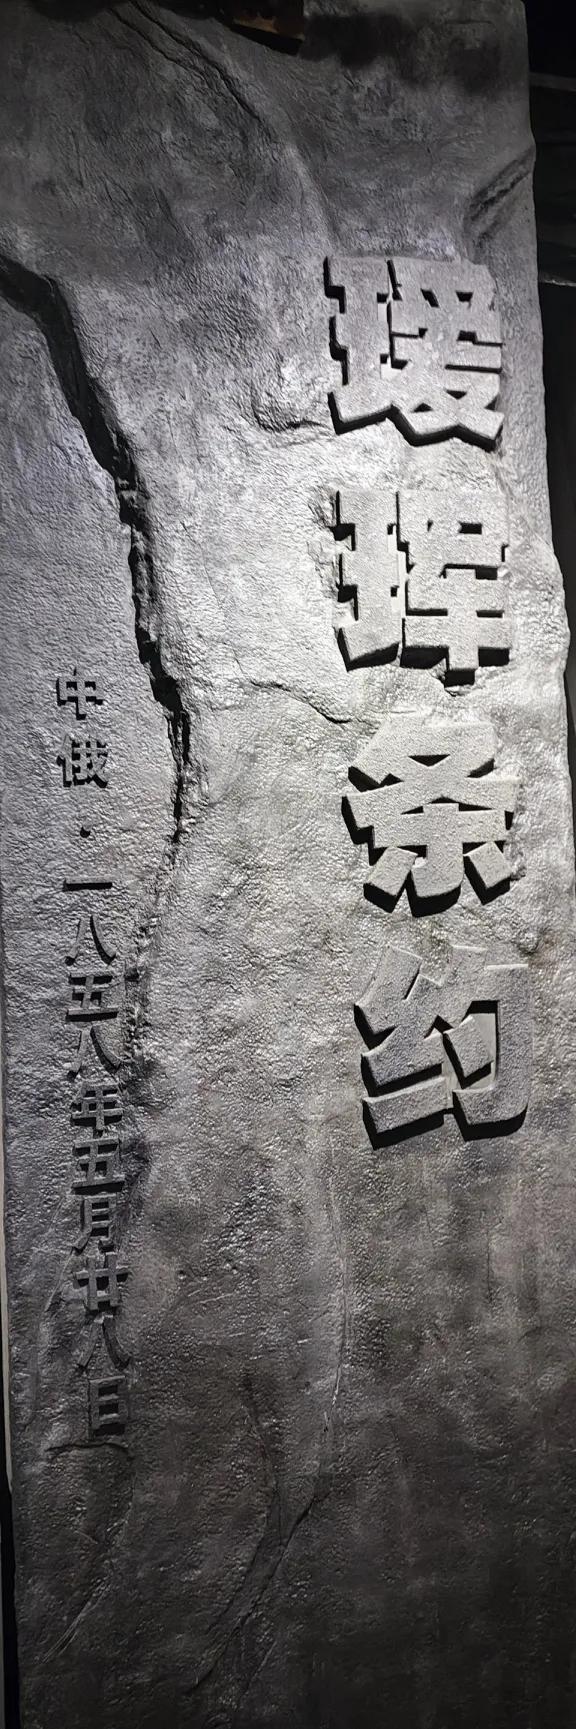 瑷珲条约
中俄·一八五八年五月廿八日